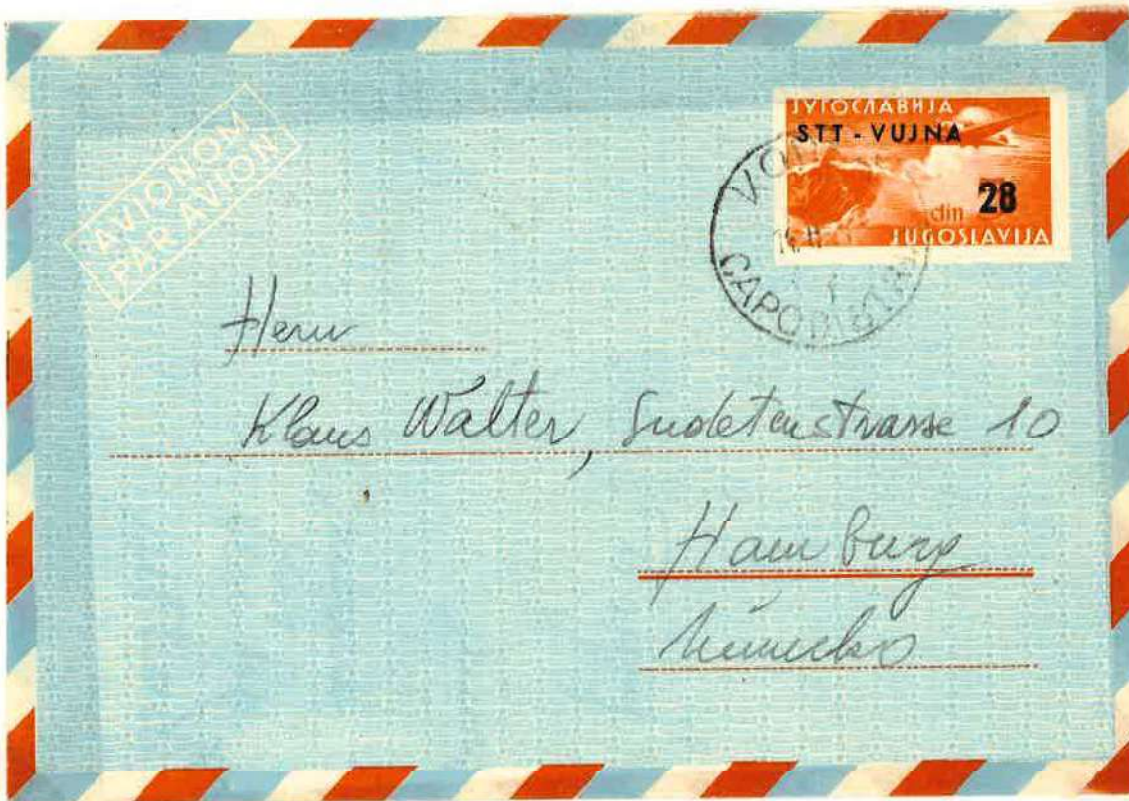 AVIONOM
PAR AVION
ЈУГОСЛАВИЈА
STT - VUJNA
din 28
JUGOSLAVIJA
CAPODISTRIA
Herrn
Klaus Walter, Sudetenstrasse 10
Hamburg